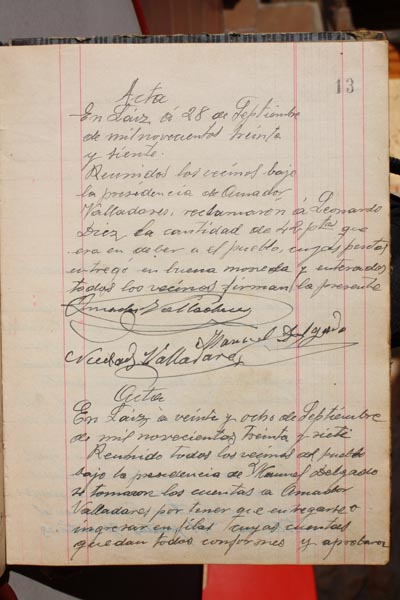 13
Acta
En Láiz á 28 de Septiembre
de mil novecientos treinta
y siente.
Reunidos los vecinos bajo
la presidencia de Amador
Valladares, reclamaron á Leonardo
Diez la cantidad de 42 ptas que
era en deber a el pueblo, cuyas pesetas
entregó en buena moneda y enterados
todos los vecinos firman la presente
Amador Valladares
Manuel Delgado
Valladares
Acta
En Láiz à veinte y ocho de Septiembre
de mil novecientos treinta y siete
Reunido todos los vecinos del pueblo
bajo la presidencia de Manuel Delgado
se tomaron las cuentas a Amador
Valladares por tener que entregarse o
ingresar en filas cuyas cuentas
quedan todos conformes y aprobaron